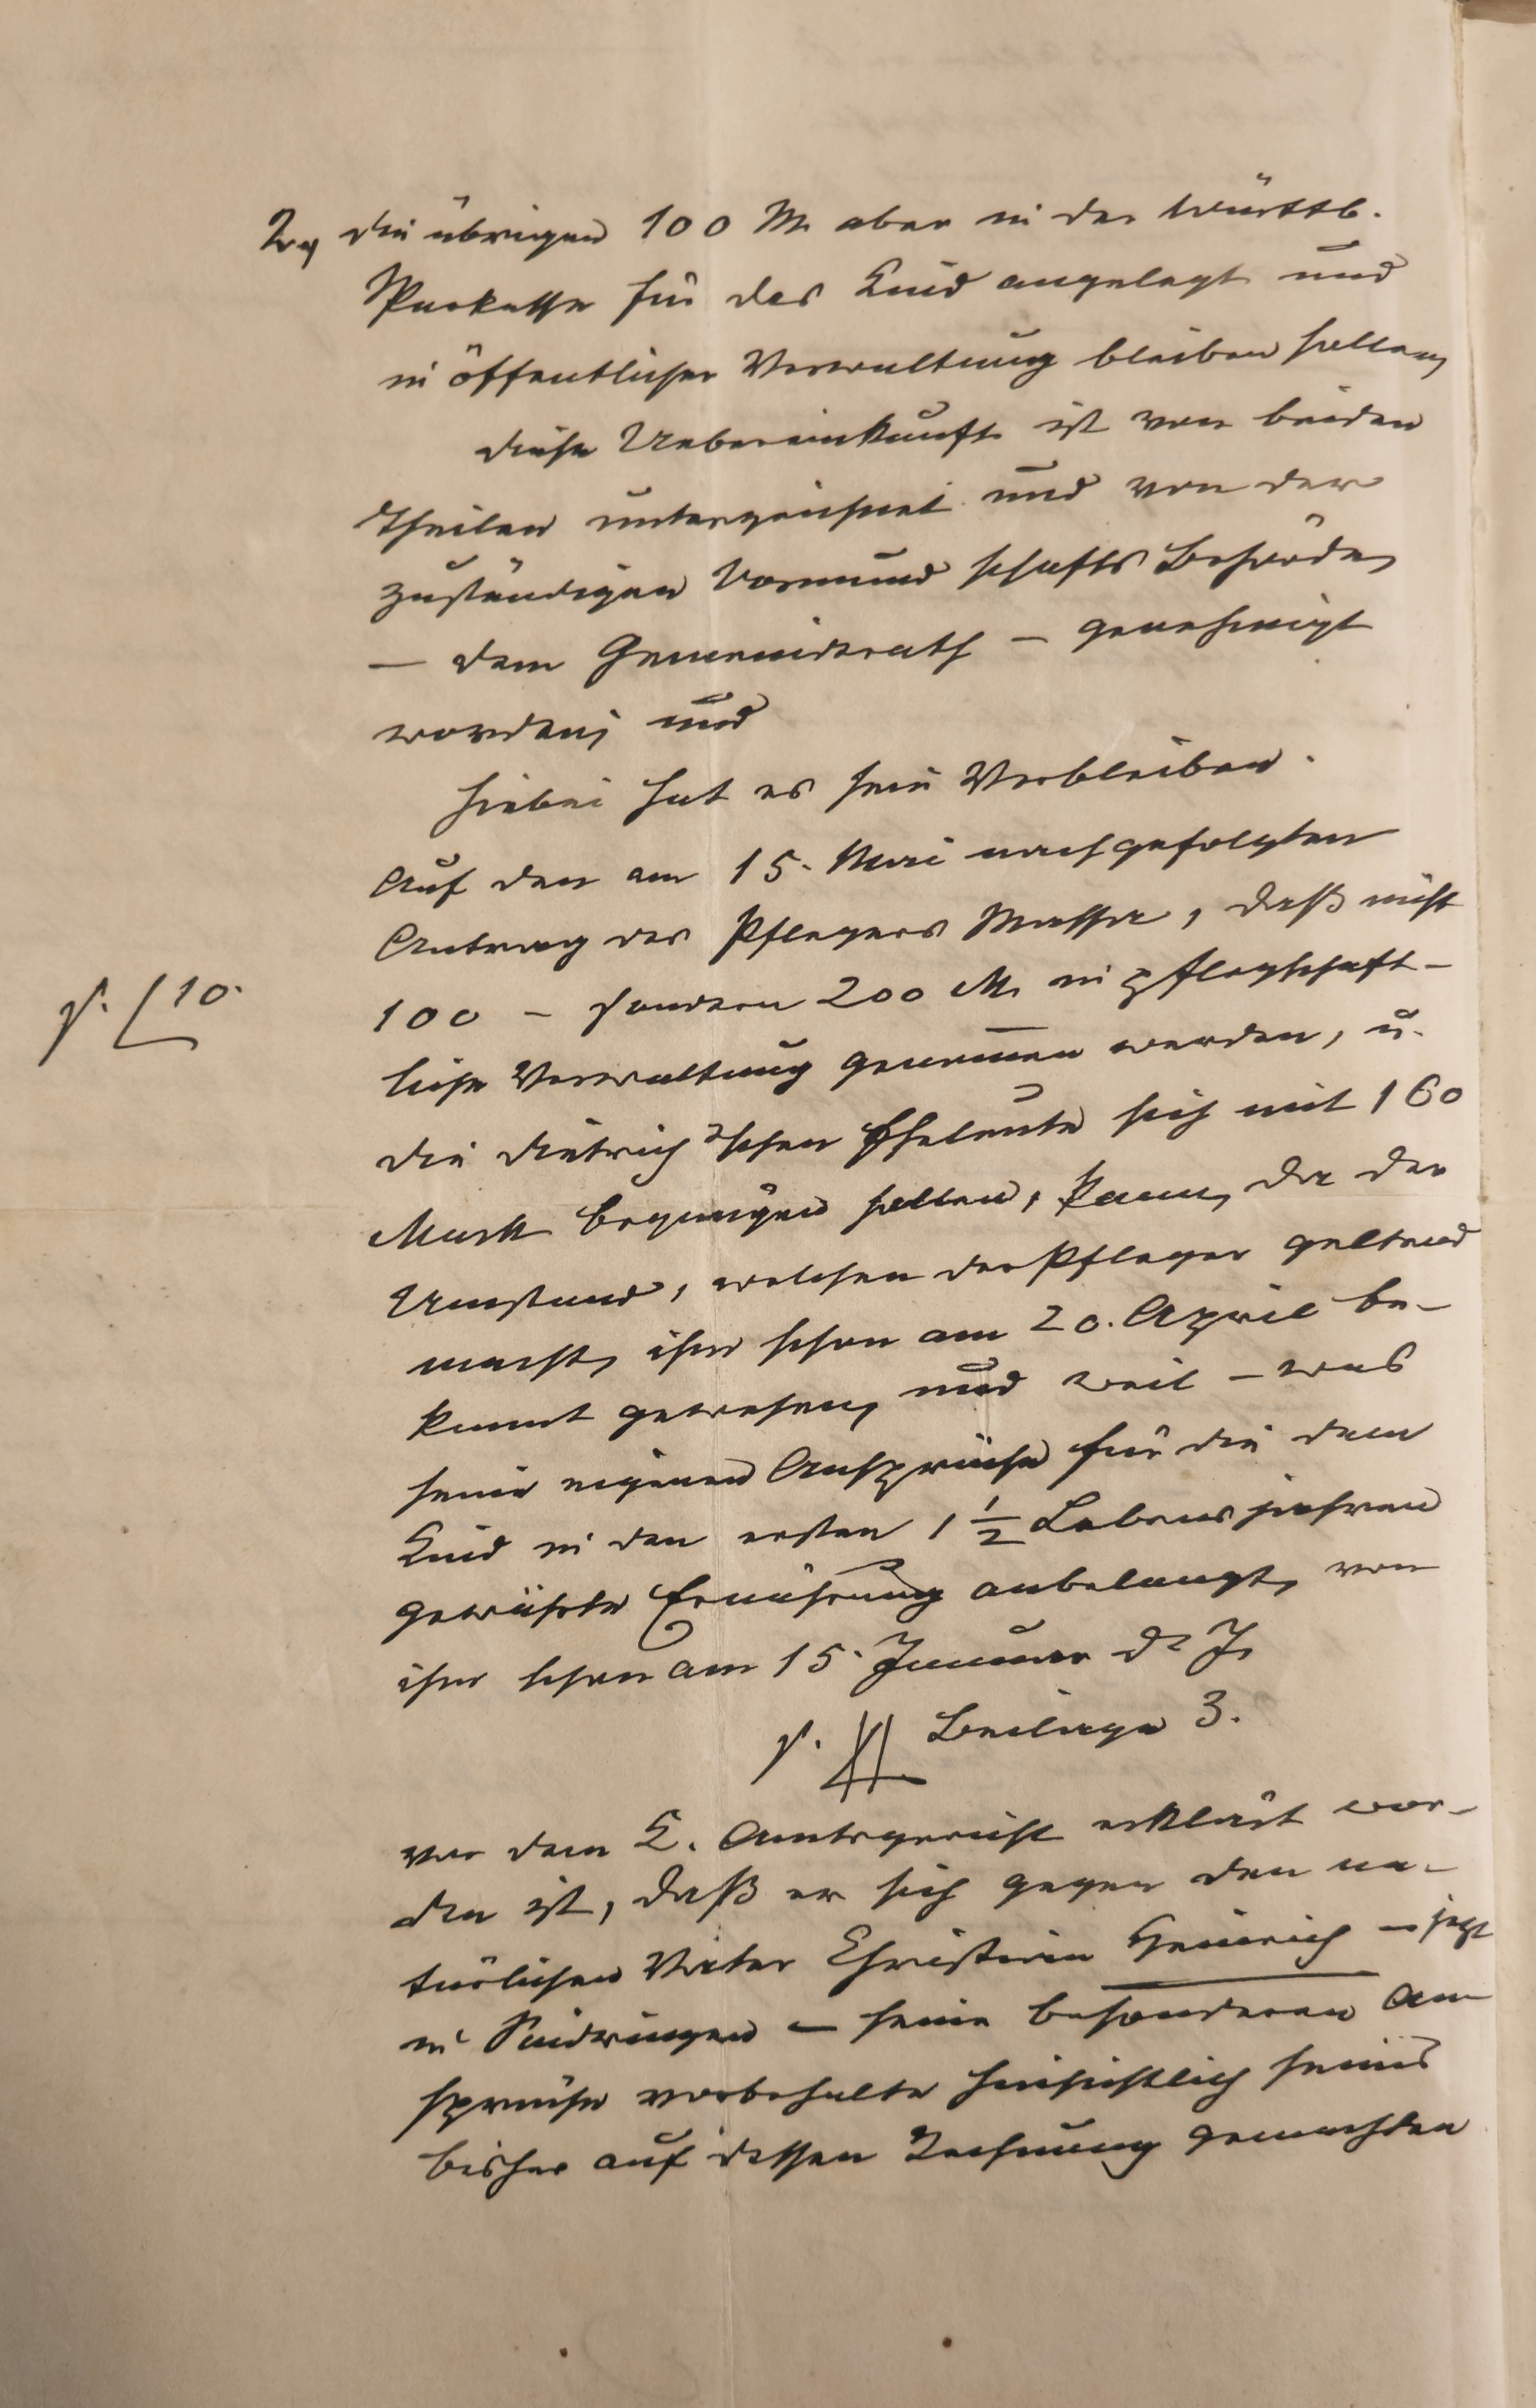 2., die übrigen 100 M. aber in der Württb.
Sparkasse für das Kind angelegt und
in öffentlicher Verwaltung bleiben sollen,
diese Uebereinkunft ist von beiden
Theilen unterzeichnet und von der
zuständigen Vormundschafts Behörde,
— dem Gemeinderath — genehmigt
worden, und
hiebei hat es sein Verbleiben.
Auf den am 15. Mai nachgefolgten
Antrag des Pflegers, daß nicht
s. [10.
100 - sondern 200 M. in pflegschaft-
liche Verwaltung genommen werden, u.
die Dietrich'schen Eheleute sich mit 160
Mark begnügen sollen, kann, da der
Umstand, welchen der Pfleger geltend
macht, ihm schon am 20. April be-
kannt gewesen, und weil - was
seine eigenen Ansprüche für die dem
Kind in den ersten 1 1/2 Lebensjahren
gewährte Ernährung anbelangt, von
ihm schon am 15. Januar d. J.
s. Beilage 3.
vor dem K. Amtsgericht erklärt wor-
den ist, daß er sich gegen den na-
türlichen Vater Christian Heinrich - jetzt
in - seine besonderen An
sprüche vorbehalte hinsichtlich seines
bisher auf dessen Rechnung gemachten